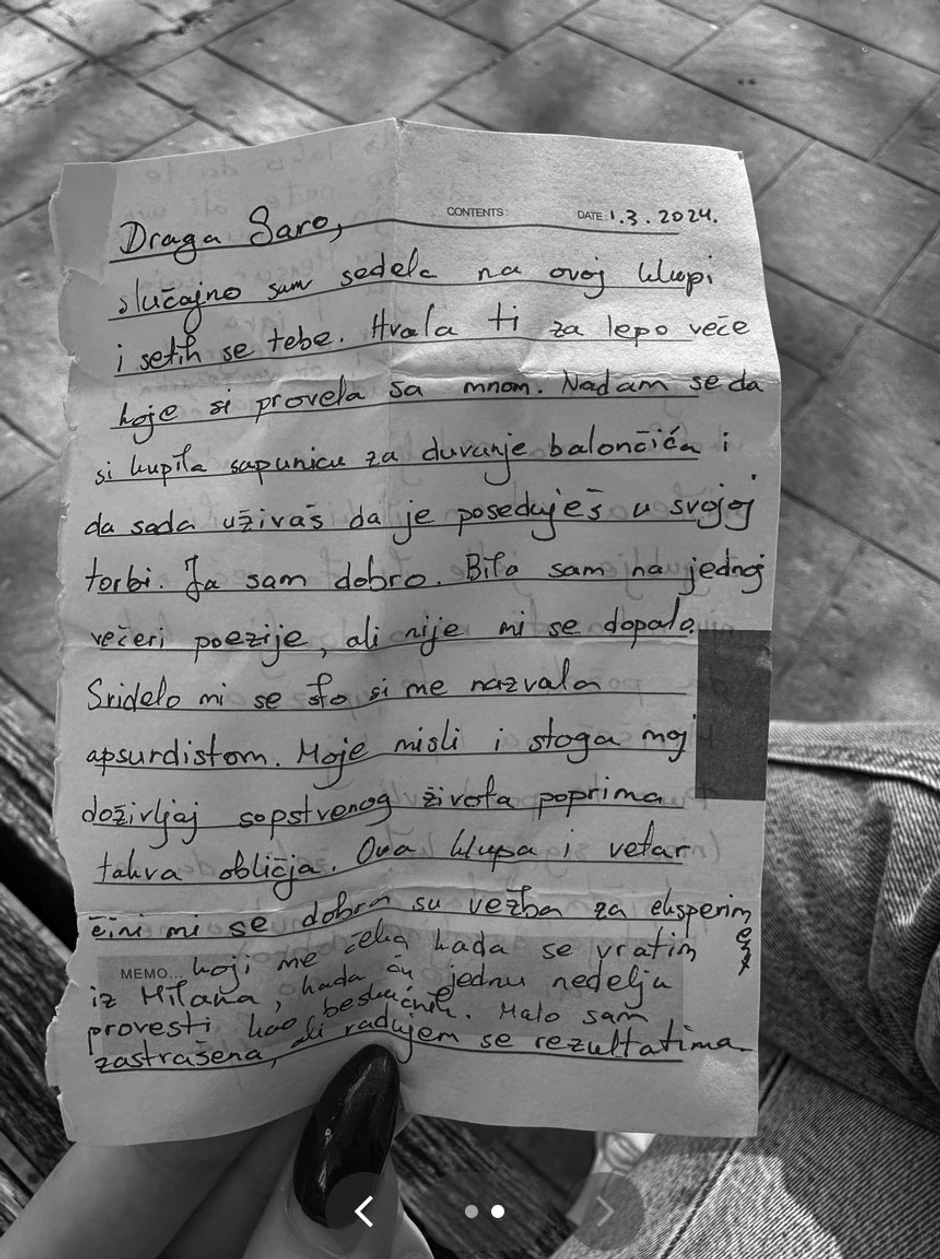 CONTENTS:
DATE: 1.3.2024.
Draga Saro,
slučajno sam sedela na ovoj klupi
i setih se tebe. Hvala ti za lepo veče
koje si provela sa mnom. Nadam se da
si kupila sapunicu za duvanje balončića i
da sada uživaš da je poseduješ u svojoj
torbi. Ja sam dobro. Bila sam na jednoj
večeri poezije, ali nije mi se dopalo.
Svidelo mi se što si me nazvala
apsurdistom. Moje misli i stoga moj
doživljaj sopstvenog života poprima
takva obličja. Ova klupa i vetar
čini mi se dobra su vežba za eksperiment
MEMO... koji me čeka kada se vratim
iz Milana, kada ću jednu nedelju
provesti kao beskućnik. Malo sam
zastrašena, ali radujem se rezultatima.